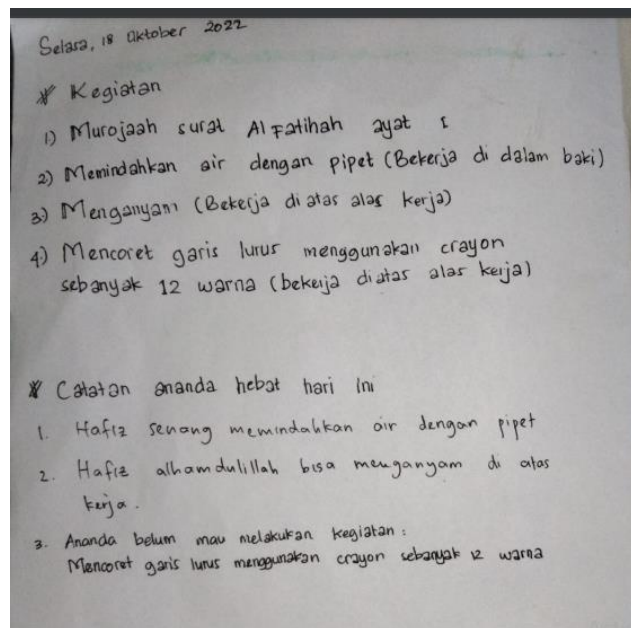 Selasa, 18 Oktober 2022
* Kegiatan
1) Murojaah surat Al Fatihah ayat 1
2) Memindahkan air dengan pipet (Bekerja di dalam baki)
3) Menganyam (Bekerja di atas alas kerja)
4) Mencoret garis lurus menggunakan crayon
sebanyak 12 warna (bekerja diatas alas kerja)
* Catatan ananda hebat hari ini
1. Hafiz senang memindahkan air dengan pipet
2. Hafiz alhamdulillah bisa menganyam di atas
kerja.
3. Ananda belum mau melakukan kegiatan :
Mencoret garis lurus menggunakan crayon sebanyak 12 warna